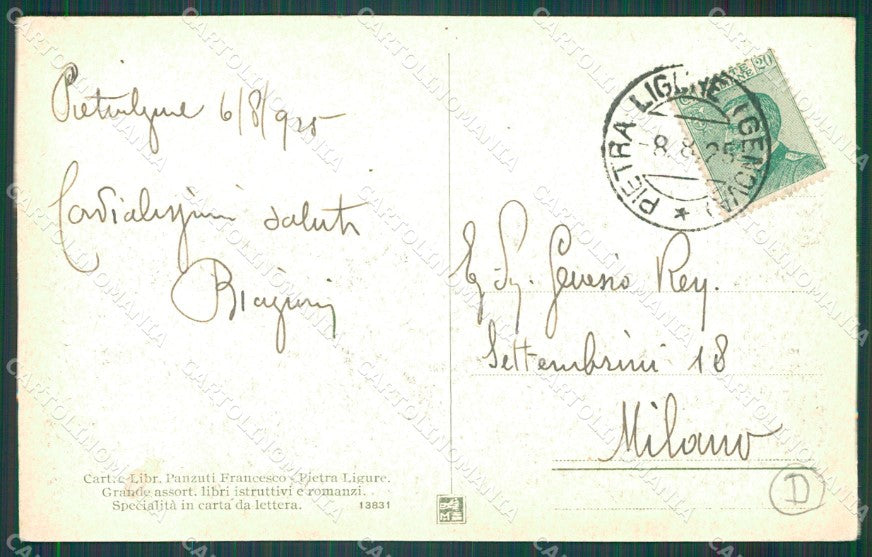 Pietraligure 6/8/925
Cordialissimi saluti
Biagioni
Eg. Sig. Genesio Rey.
Settembrini 18
Milano
PIETRA LIGURE (GENOVA)
-8.8.25
20
Cart. e Libr. Panzuti Francesco - Pietra Ligure.
Grande assort. libri istruttivi e romanzi.
Specialità in carta da lettera. 13831
D
CARTOLINOMANIA